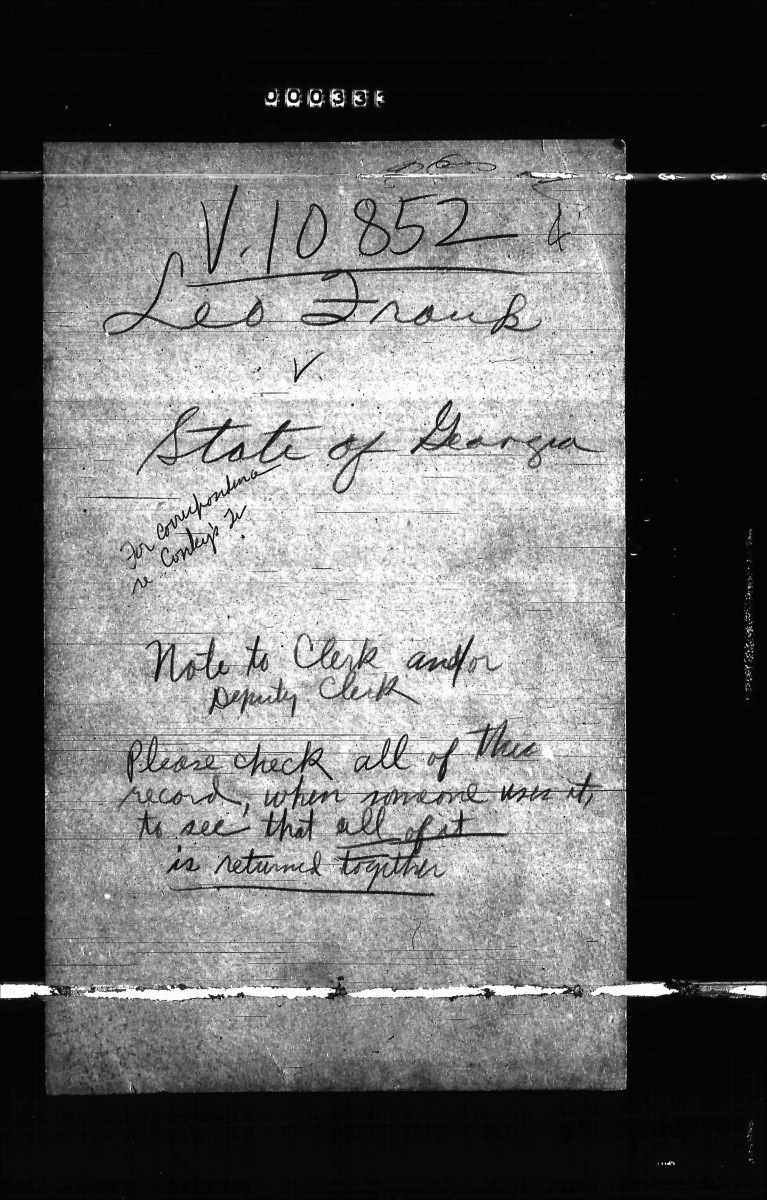 000333
V. 10852
Leo Frank
v
State of Georgia
For correspondence
re Conley's Tr
Note to Clerk and/or
Deputy Clerk
Please check all of this
record, when someone uses it,
to see that all of it
is returned together